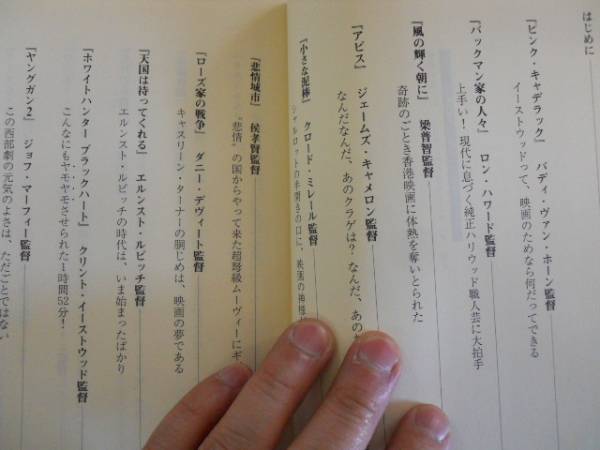 はじめに
『ピンク・キャデラック』　バディ・ヴァン・ホーン監督
イーストウッドって、映画のためなら何だってできる
『バックマン家の人々』　ロン・ハワード監督
上手い！　現代に息づく純正ハリウッド職人芸に大拍手
『風の輝く朝に』　梁普智監督
奇跡のごとき香港映画に体熱を奪いとられた
『アビス』　ジェームズ・キャメロン監督
なんだなんだ、あのクラゲは？　なんだ、あの
『小さな泥棒』　クロード・ミレール監督
シャルロットの半開きの口に、映画の神様
『悲情城市』　侯孝賢監督
“悲情”の国からやって来た超弩級ムーヴィーにギ
『ローズ家の戦争』　ダニー・デヴィート監督
キャスリーン・ターナーの胴じめは、映画の夢である
『天国は待ってくれる』　エルンスト・ルビッチ監督
エルンスト・ルビッチの時代は、いま始まったばかり
『ホワイトハンター　ブラックハート』　クリント・イーストウッド監督
こんなにもヤモヤモさせられた1時間52分！
『ヤングガン2』　ジョフ・マーフィー監督
この西部劇の元気のよさは、ただごとではない